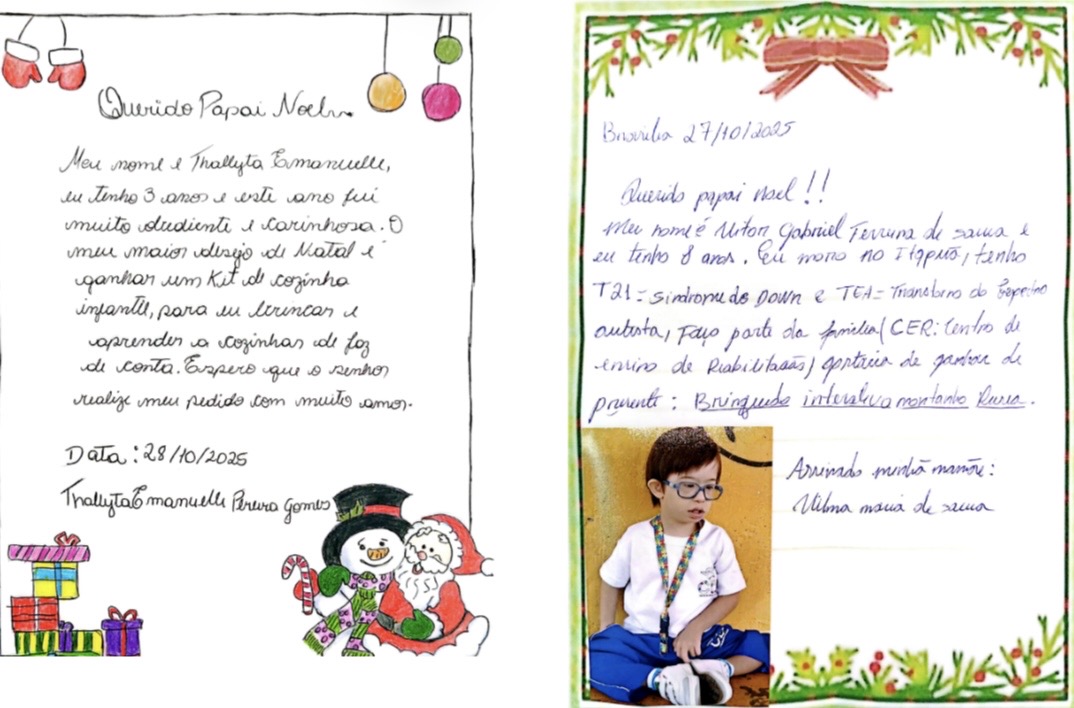 Querido Papai Noel...
Meu nome é Thallyta Emanuelle,
eu tenho 3 anos e este ano fui
muito obediente e carinhosa. O
meu maior desejo de Natal é
ganhar um Kit de cozinha
infantil, para eu brincar e
aprender a cozinhar de faz
de conta. Espero que o senhor
realize meu pedido com muito amor.
Data: 28/10/2025
Thallyta Emanuelle Pereira Gomes
Brasília 27/10/2025
Querido papai Noel!!
Meu nome é Vitor Gabriel Ferreira de sousa e
eu tenho 8 anos. Eu moro no Itapuã, tenho
T21 = sindrome do Down e TEA = Transtorno do Espectro
autista, Faço parte da família (CER: Centro de
ensino de Reabilitação) gostaria de ganhar de
presente: Brinquedo interativo montanha Russa.
Assinado minha mamãe:
Vilma maria de sousa